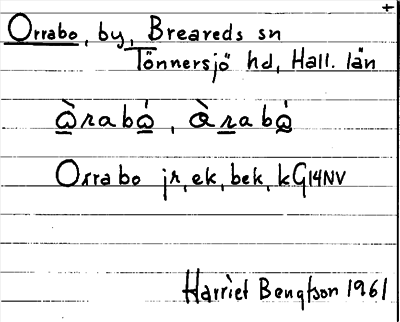 +
Orrabo, by, Breareds sn
Tönnersjö hd, Hall. län
Orrabo jr, ek, bek, kG14NV
Harriet Bengtson 1961